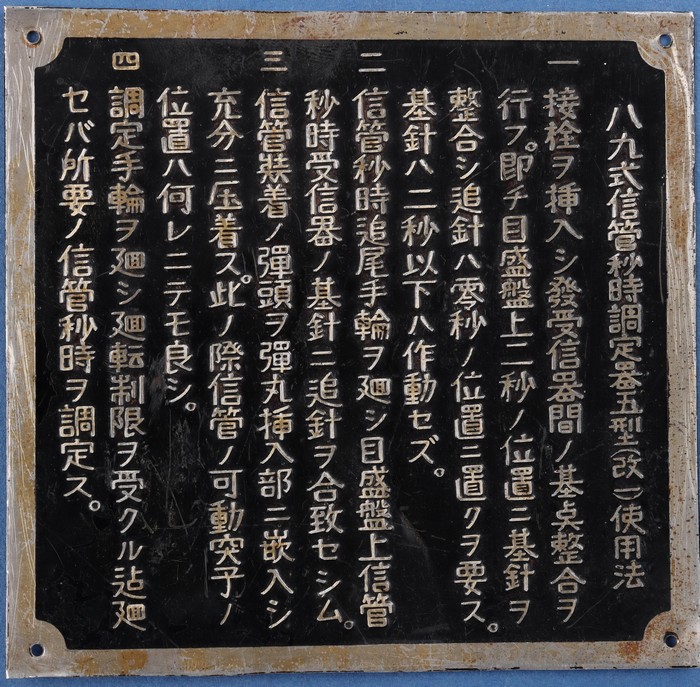 八九式信管秒時調定器五型(改一)使用法
一 接栓ヲ挿入シ發受信器間ノ基点整合ヲ
行フ。即チ目盛盤上二秒ノ位置ニ基針ヲ
整合シ追針ハ零秒ノ位置ニ置クヲ要ス。
基針ハ二秒以下ハ作動セズ。
二 信管秒時追尾手輪ヲ廻シ目盛盤上信管
秒時受信器ノ基針ニ追針ヲ合致セシム。
三 信管裝着ノ彈頭ヲ彈丸挿入部ニ嵌入シ
充分ニ圧着ス。此ノ際信管ノ可動突子ノ
位置ハ何レニテモ良シ。
四 調定手輪ヲ廻シ廻転制限ヲ受クル迠廻
セバ所要ノ信管秒時ヲ調定ス。